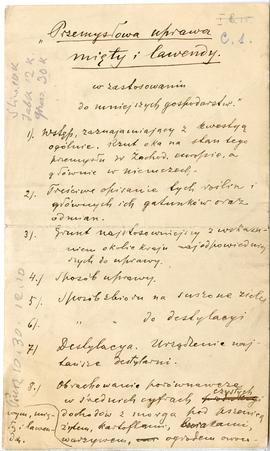 "Przemysłowa uprawa
mięty i lawendy.
C. 1.
w zastosowaniu
do mniejszych gospodarstw."
1). Wstęp, zaznajamiający z kwestyą
ogólnie. Rzut oka na stan tego
przemysłu w Zachod. Europie, a
głównie w Niemczech.
2). Treściwe opisanie tych roślin i
głównych ich gatunków oraz
odmian.
3). Grunt najstosowniejszy z wskaza-
niem okolic kraju najodpowiedniej-
szych do uprawy.
4.) Sposób uprawy.
5.) Sposób zbioru na suszone ziele
6.) " do destylacyi
7) Destylacya. Urządzenie naj-
tańsze destylarni.
8.) Obrachowanie porównawcze
w średnich cyfrach czystych
dochodów z morga pod pszenicą
żytem, kartoflami, burakami,
warzywem, ogrodem owoco-
wym, mię-
tą i lawen-
dą.